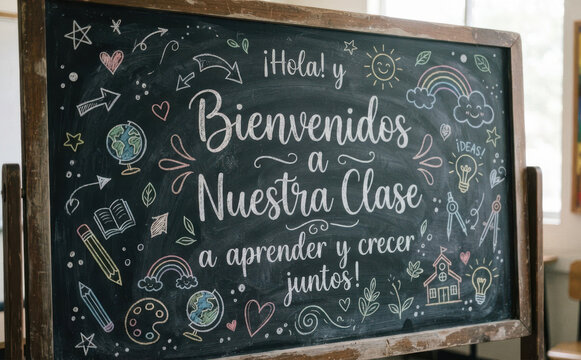 ¡Hola! y
Bienvenidos
a
Nuestra Clase
a aprender y crecer
juntos!
¡DEAS!